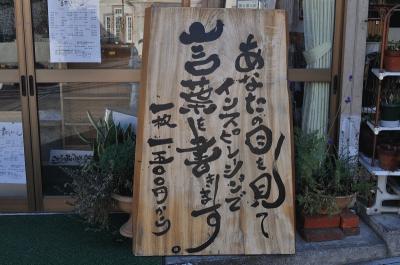 あなたの目を見て
インスピレーションで
言葉を書きます。
一枚 一五〇〇円から